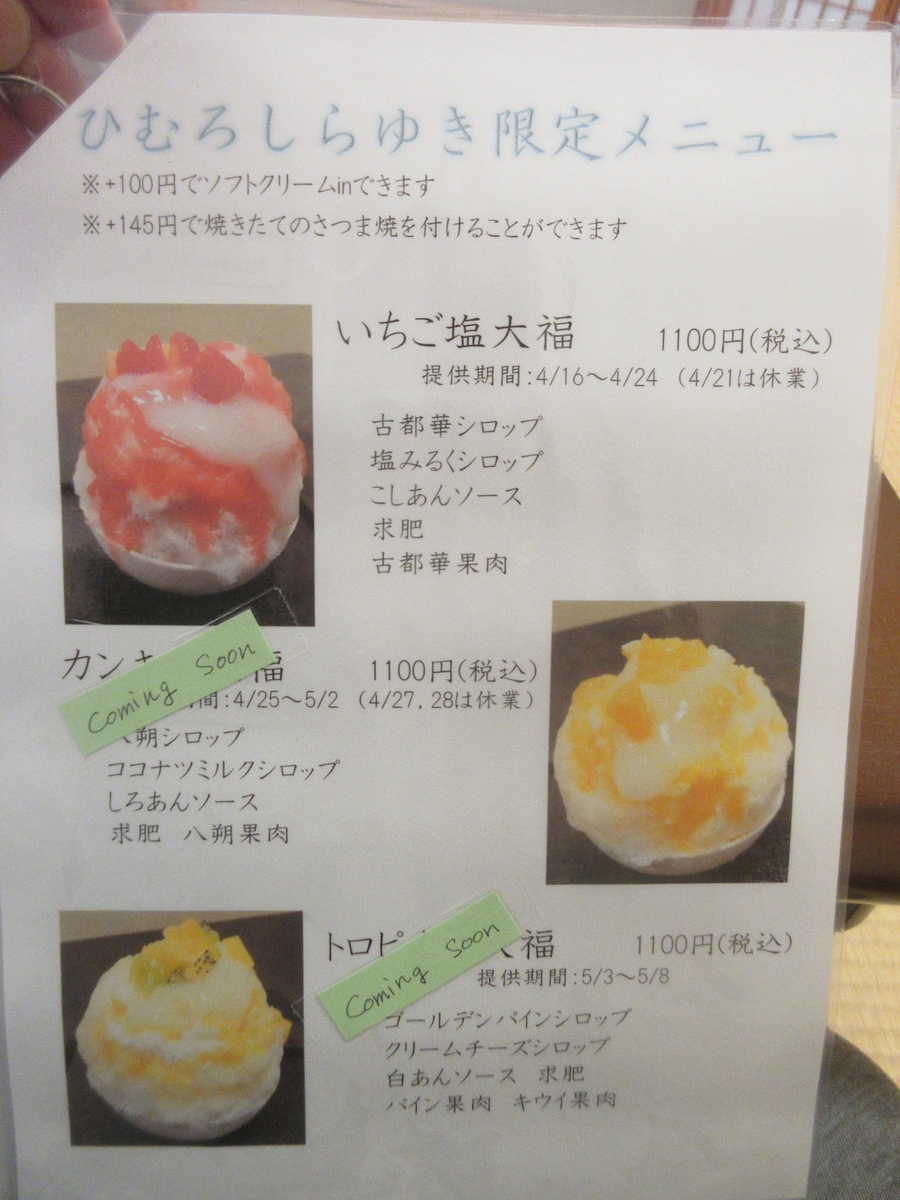 ひむろしらゆき限定メニュー
※+100円でソフトクリームinできます
※+145円で焼きたてのさつま焼を付けることができます
いちご塩大福 1100円(税込)
提供期間:4/16～4/24 (4/21は休業)
古都華シロップ
塩みるくシロップ
こしあんソース
求肥
古都華果肉
カン 福 1100円(税込)
Coming Soon
間:4/25～5/2 (4/27,28は休業)
朔シロップ
ココナツミルクシロップ
しろあんソース
求肥 八朔果肉
トロピ 大福 1100円(税込)
Coming Soon
提供期間:5/3～5/8
ゴールデンパインシロップ
クリームチーズシロップ
白あんソース 求肥
パイン果肉 キウイ果肉